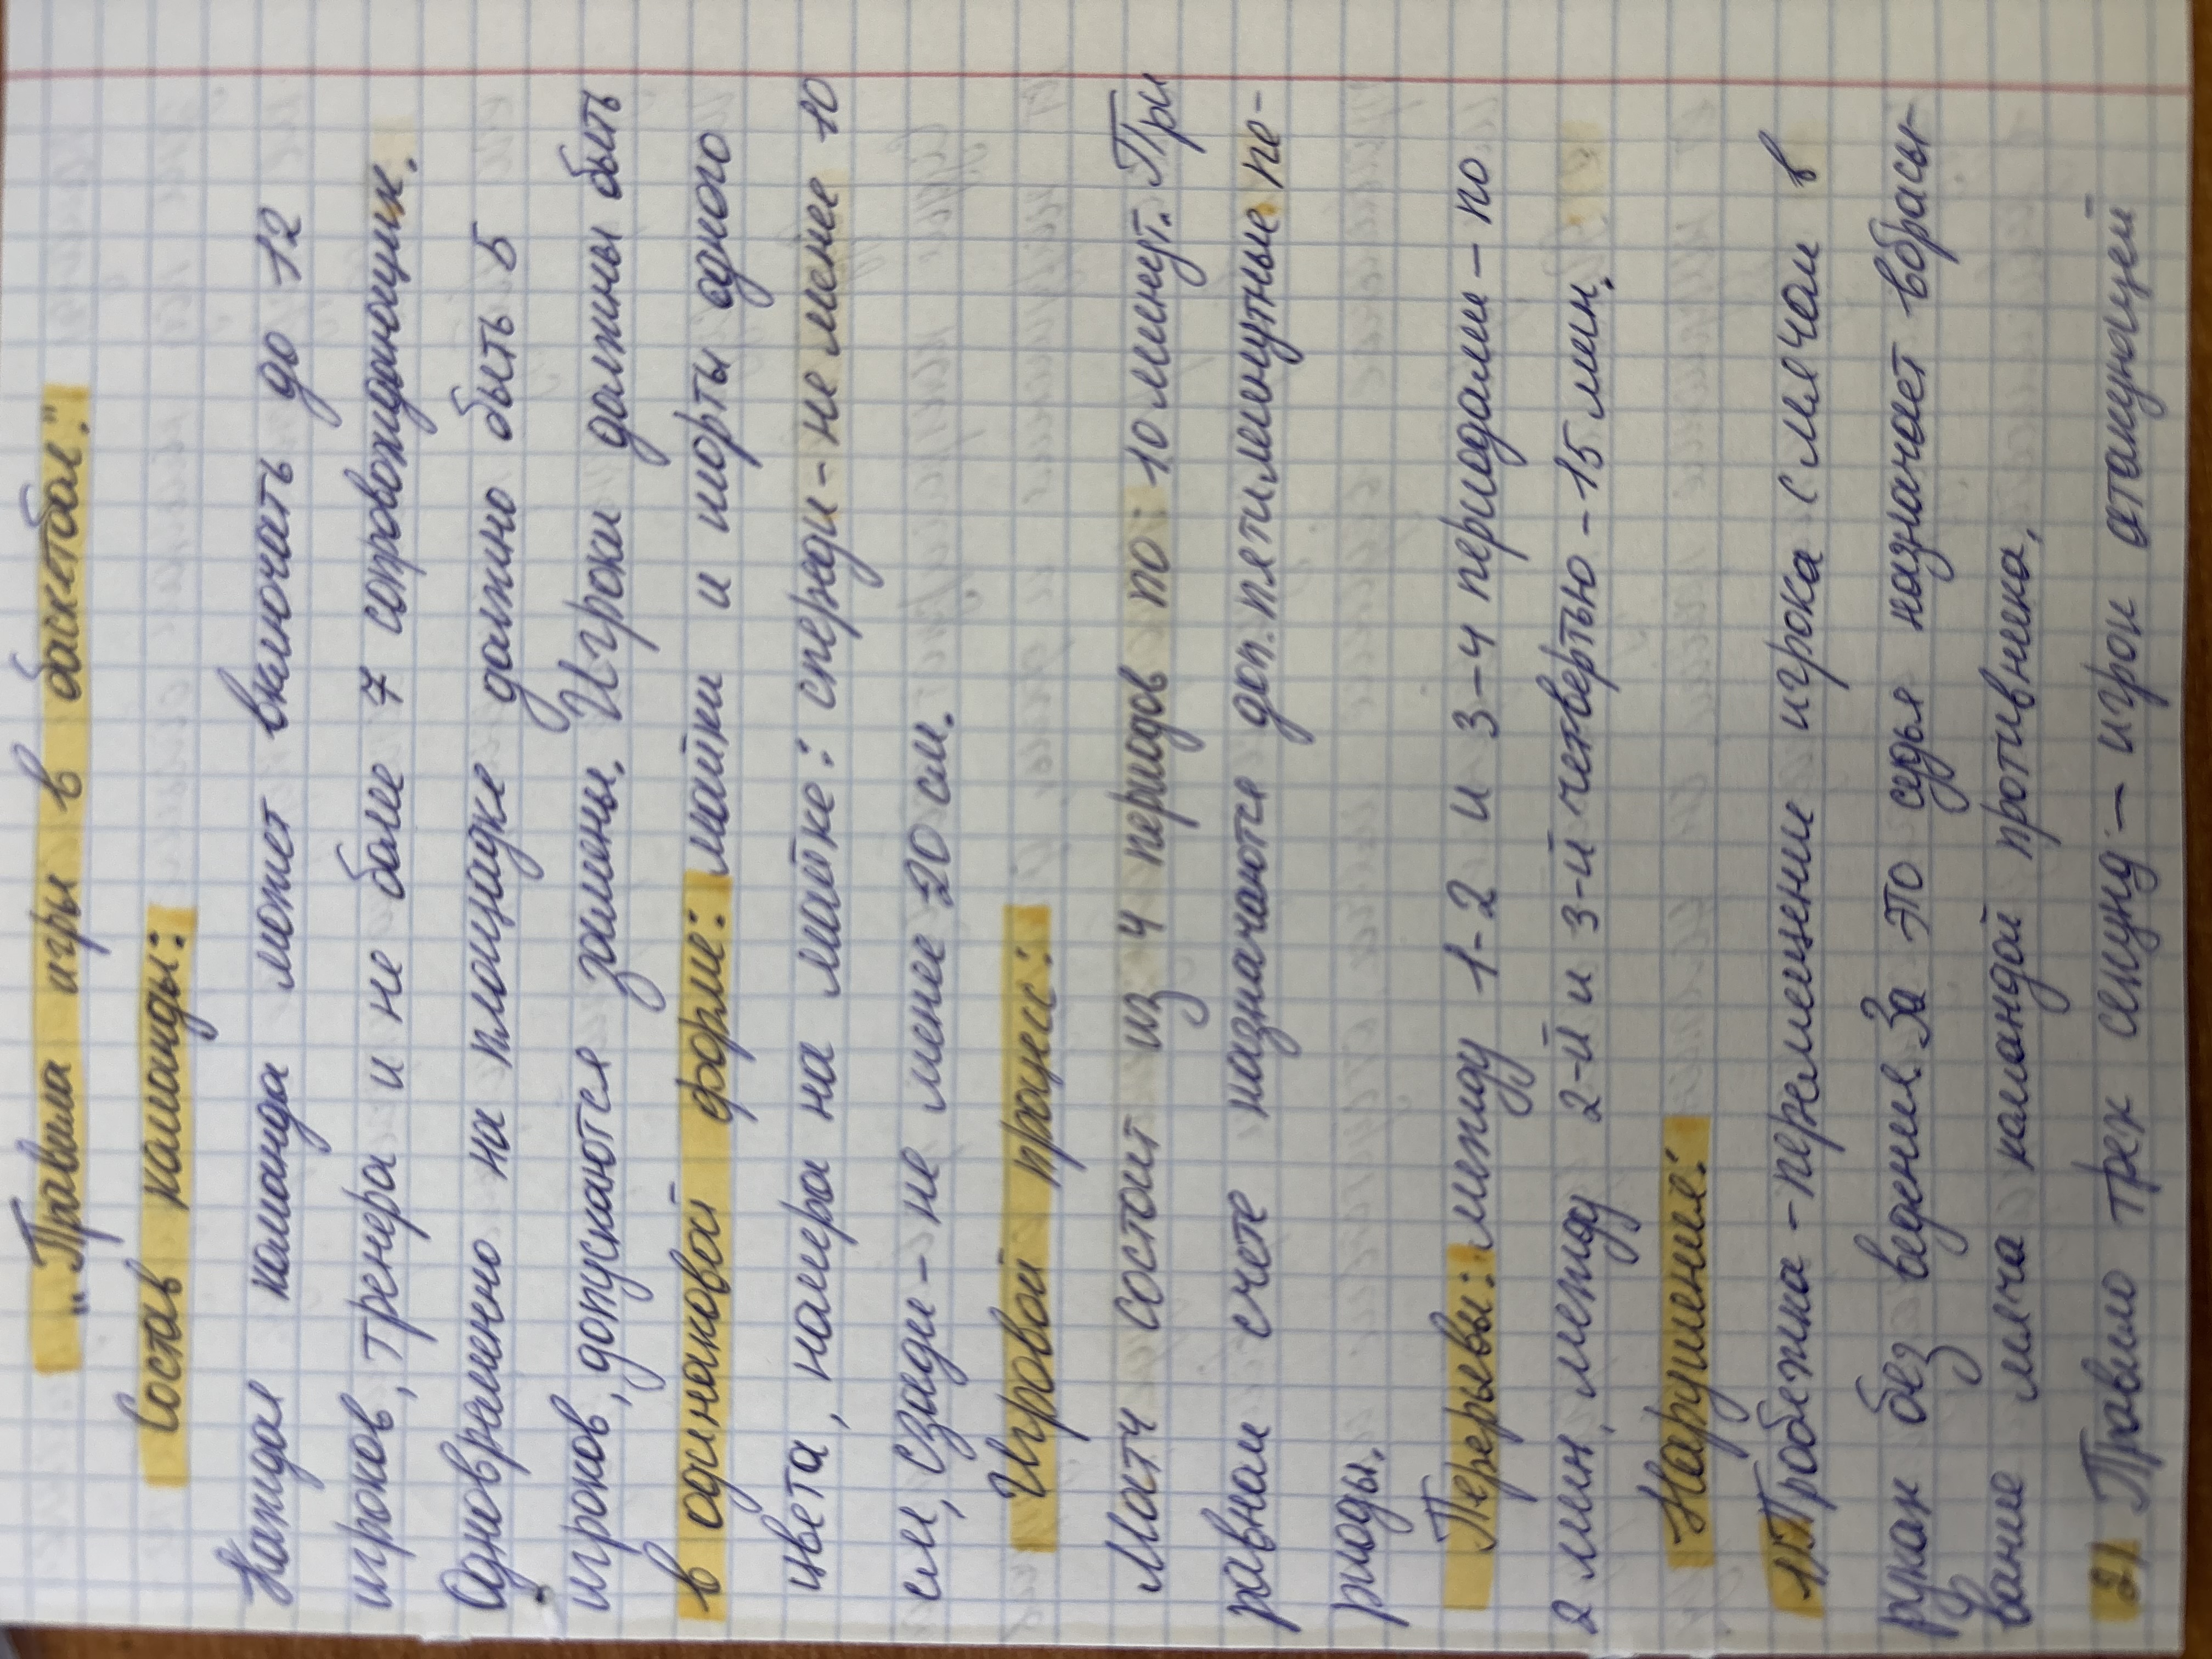 „Правила игры в баскетбол."
Состав команды:
Каждая команда может включать до 12
игроков, тренера и не более 7 сопровождающих.
Одновременно на площадке должно быть 5
игроков, допускаются замены. Игроки должны быть
в одинаковой форме: майки и шорты одного
цвета, номера на майке: спереди - не менее 10
см, сзади - не менее 20 см.
Игровой процесс:
Матч состоит из 4 периодов по 10 минут. При
равном счете назначаются доп. пятиминутные пе-
риоды.
Перерывы: между 1-2 и 3-4 периодами - по
2 мин, между 2-й и 3-й четвертью - 15 мин.
Нарушения:
1) Пробежка - перемещение игрока с мячом в
руках без ведения. За это судья назначает вбрасы-
вание мяча командой противника.
2) Правило трех секунд - игрок атакующей